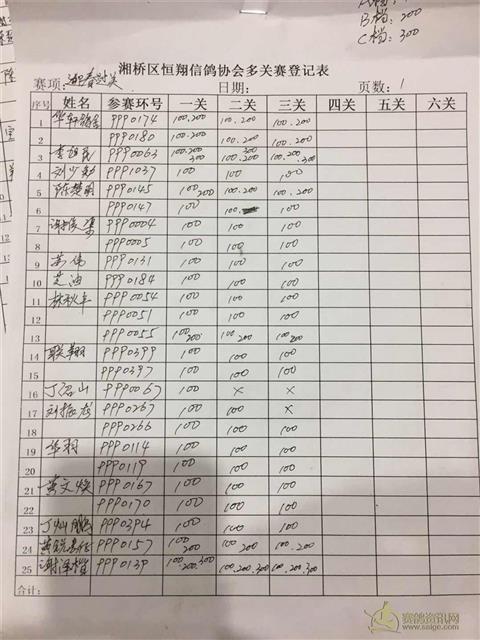 A档:100
B档:200
C档:300
湘桥区恒翔信鸽协会多关赛登记表
赛项: 日期: 页数: 1
序号 姓名 参赛环号 一关 二关 三关 四关 五关 六关
1 PPP0174 100.200 100.200 100.200
2 PPP0180 100.200 100.200 100.200
3 PPP0063 100.200 300 100.200 300 100.200 300
4 刘少勤 PPP1037 100 100 100
5 陈楚明 PPP0145 100 200 100.200 100.200
6 PPP0147 100 100. 100
7 PPP0004 100 100 100
8 PPP0005 100 100 100
9 黄伟 PPP0131 100 100 100
10 芝油 PPP0184 100 100 100
11 林秋丰 PPP0054 100 100 100
12 PPP0051 100 100 100
13 PPP0055 100 200 100 200 100 200
14 联翔 PPP0399 100 100 100
15 PPP0397 100 100 100
16 PPP0067 100 × ×
17 刘振彦 PPP0267 100 100 ×
18 PPP0266 100 100 100
19 华羽 PPP0114 100 100 100
20 PPP0119 100 100 100
21 黄文焕 PPP0167 100 100 100
22 PPP0170 100 100 100
23 丁灿鹏 PPP0394 100 100 100
24 PPP0157 100 200 100 200 100.200
25 PPP0139 100.200.300 100.200.300 100.200.300
合计:
赛鸽资讯网
www.saige.com